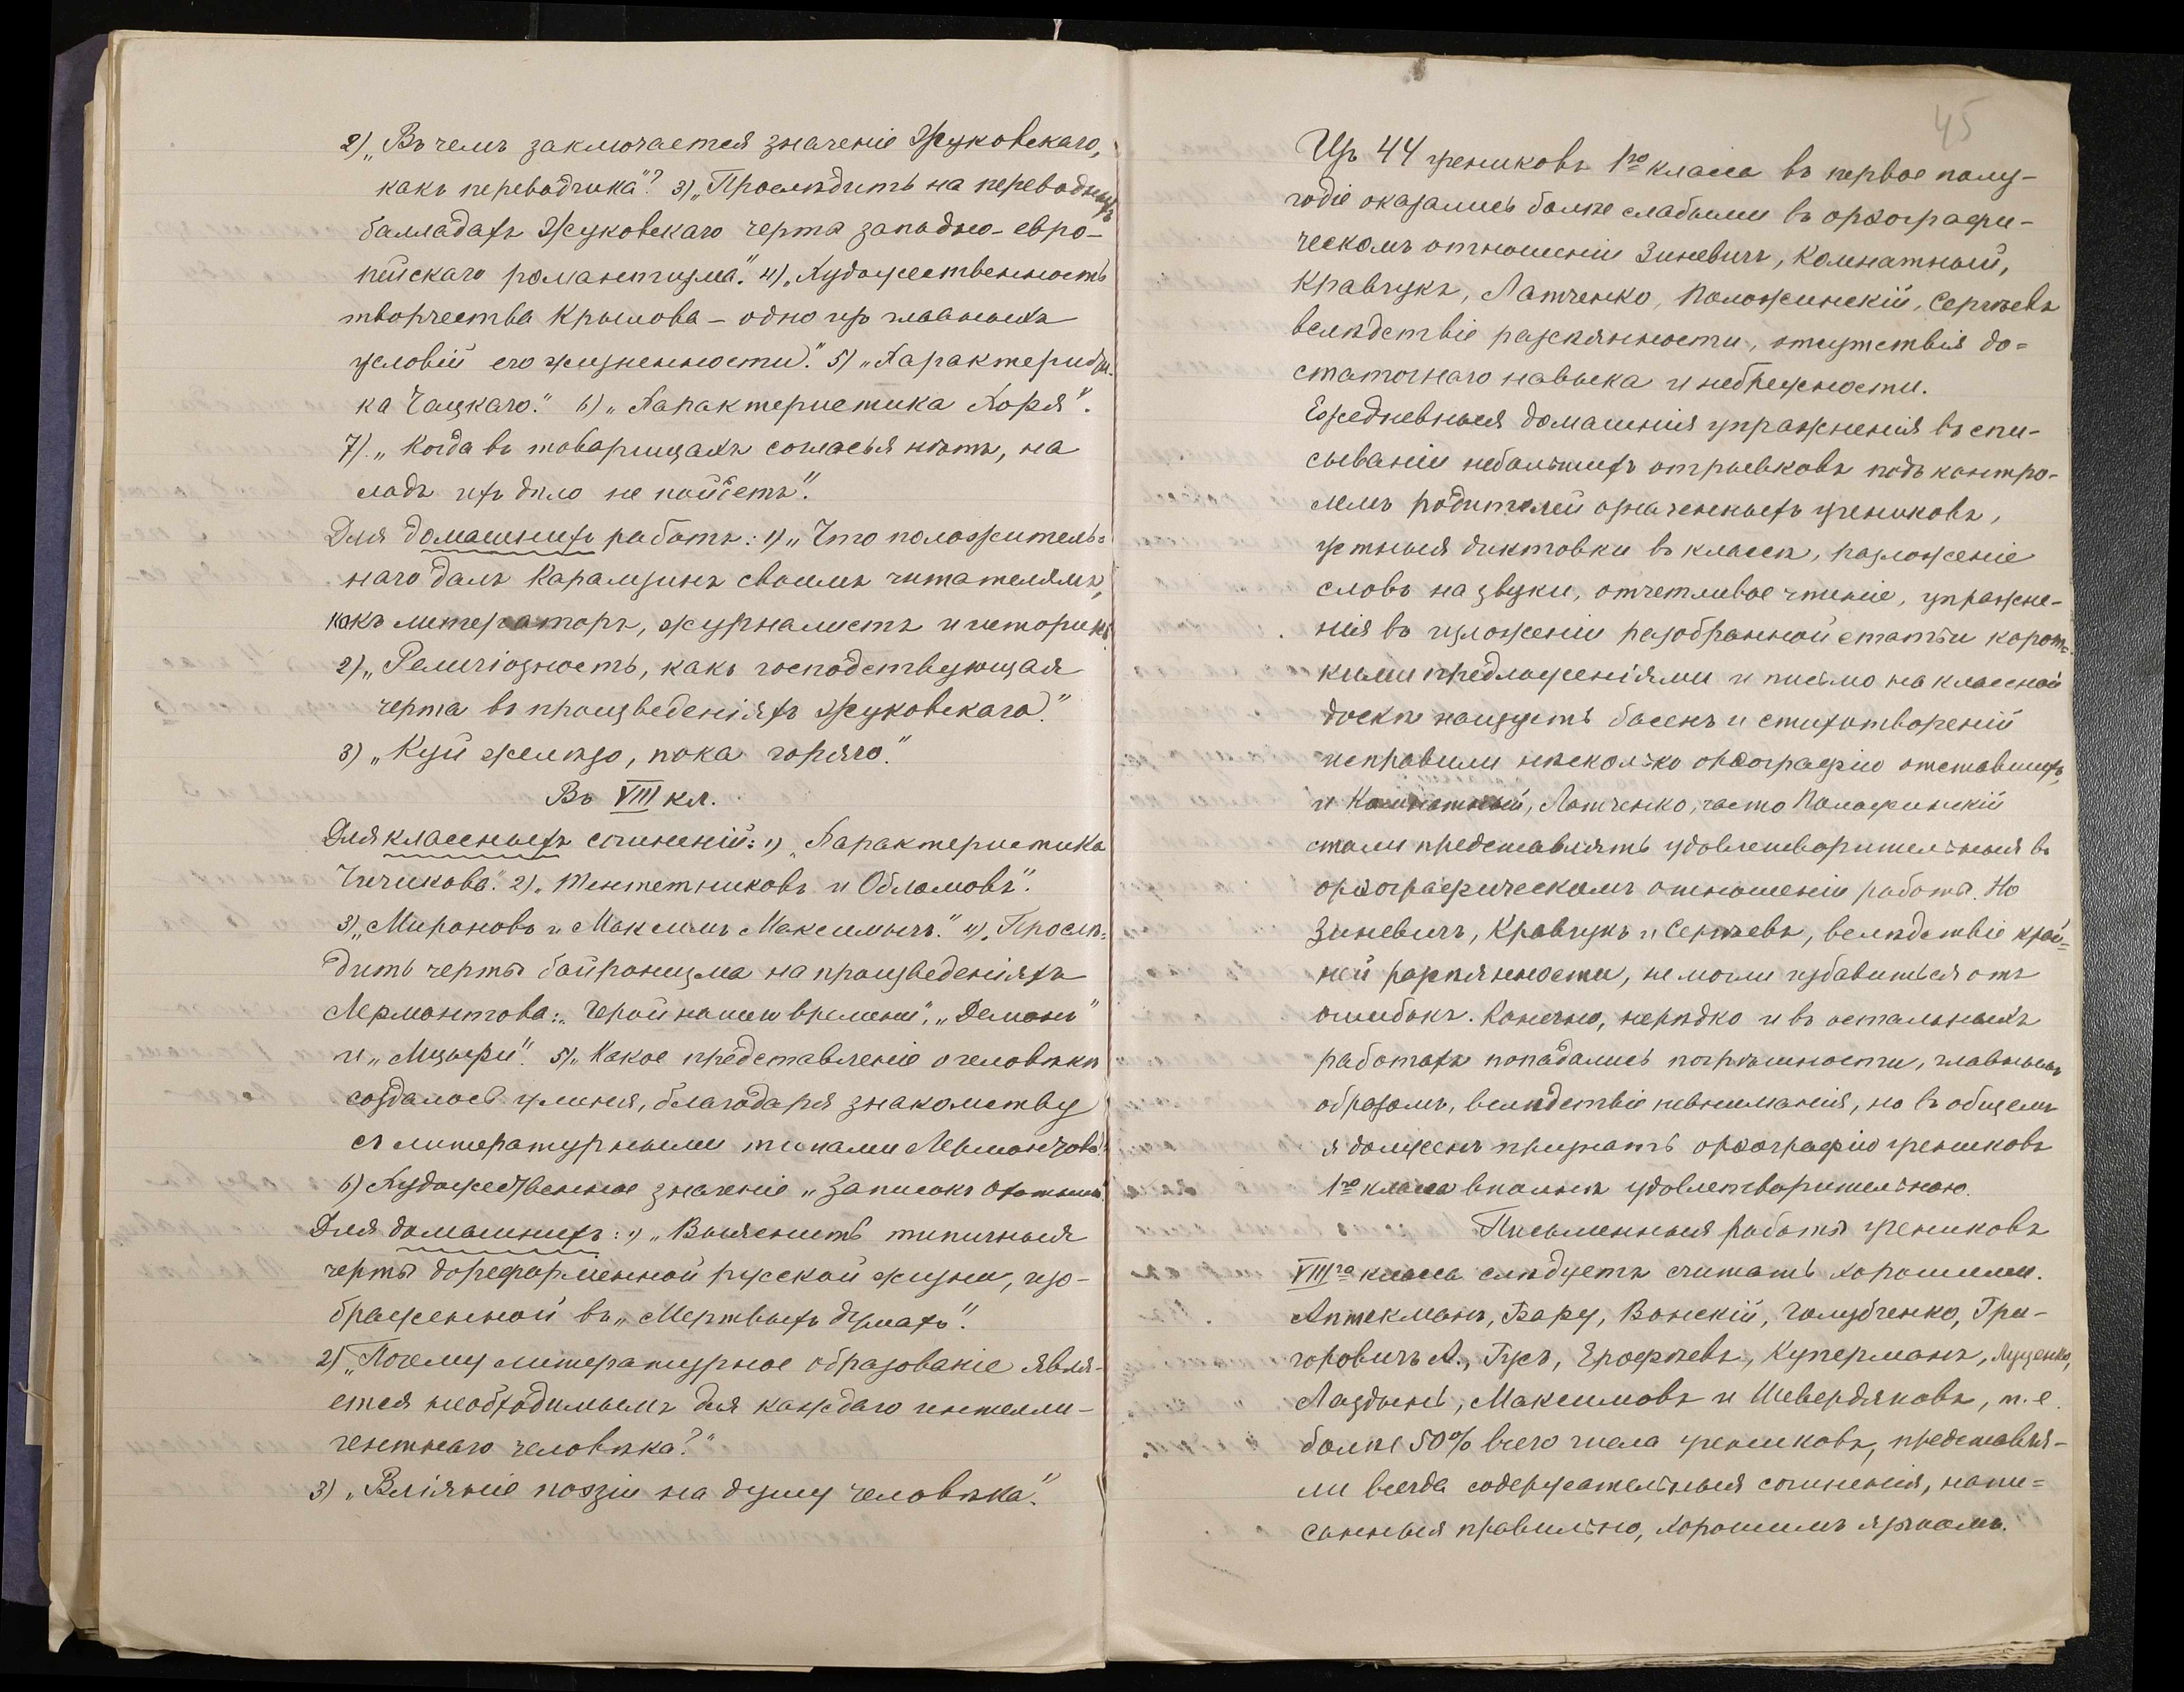 2) „Въ чемъ заключается значеніе Жуковскаго,
какъ переводчика"? 3) „Прослѣдить на переводныхъ
балладахъ Жуковскаго черты западно-евро-
пейскаго романтизма". 4) „Художественность
творчества Крылова – одно изъ главныхъ
условій его жизненности." 5) „Характеристи-
ка Чацкаго." 6) „Характеристика Хоря".
7) „Когда въ товарищахъ согласья нѣтъ, на
ладъ ихъ дѣло не пойдетъ".
Для домашнихъ работъ: 1) „Что положитель=
наго далъ Карамзинъ своимъ читателямъ,
какъ литераторъ, журналистъ и историкъ
2) „Религіозность, какъ господствующая
черта въ произведеніяхъ Жуковскаго."
3) „Куй желѣзо, пока горячо."
Въ VIII кл.
Для классныхъ сочиненій: 1) „Характеристика
Чичикова." 2) „Тентетниковъ и Обломовъ".
3) „Мироновъ и Максимъ Максимычъ." 4) „Прослѣ=
дить черты байронизма на произведеніяхъ
Лермонтова: „Герой нашего времени", „Демонъ"
и „Мцыри". 5) „Какое представленіе о человѣкѣ
создалось у меня, благодаря знакомству
съ литературными типами Лермонтова"
6) Художественное значеніе „Записокъ Охотника".
Для домашнихъ: 1) „Выяснить типичныя
черты дореформенной русской жизни, изо-
браженной въ „Мертвыхъ душахъ".
2) „Почему литературное образованіе явля-
ется необходимымъ для каждаго интелли-
гентнаго человѣка?"
3) „Вліяніе поэзіи на душу человѣка".
45
Изъ 44 учениковъ 1го класса въ первое полу-
годіе оказались болѣе слабыми въ орѳографи-
ческомъ отношеніи Зиневичъ, Комнатный,
Кравчукъ, Латченко, Положинскій, Сергѣевъ
вслѣдствіе разсѣянности, отсутствія до=
статочнаго навыка и небрежности.
Ежедневныя домашнія упражненія въ спи-
сываніи небольшихъ отрывковъ подъ контро-
лемъ родителей означенныхъ учениковъ,
устныя диктовки въ классѣ, разложеніе
словъ на звуки, отчетливое чтеніе, упражне-
нія въ изложеніи разобранной статьи корот=
кими предложеніями и письмо на классной
доскѣ наизусть басенъ и стихотвореній
исправили нѣсколько орѳографію отставшихъ,
и Комнатный, Латченко, часто Положинскій
стали представлять удовлетворительныя въ
орѳографическомъ отношеніи работы. Но
Зиневичъ, Кравчукъ и Сергѣевъ, вслѣдствіе край=
ней разсѣянности, не могли избавиться отъ
ошибокъ. Конечно, нерѣдко и въ остальныхъ
работахъ попадались погрѣшности, главнымъ
образомъ, вслѣдствіе невниманія, но въ общемъ
я долженъ признать орѳографію учениковъ
1го класса вполнѣ удовлетворительною.
Письменныя работы учениковъ
VIIIго класса слѣдуетъ считать хорошими.
Аптекманъ, Бару, Вонскій, Голубченко, Гри-
горовичъ А., Гусъ, Ерофѣевъ, Куперманъ, Луценко,
Лаздынь, Максимовъ и Шевердяковъ, т. е.
болѣе 50% всего числа учениковъ, представля-
ли всегда содержательныя сочиненія, напи=
санныя правильно, хорошимъ языкомъ.